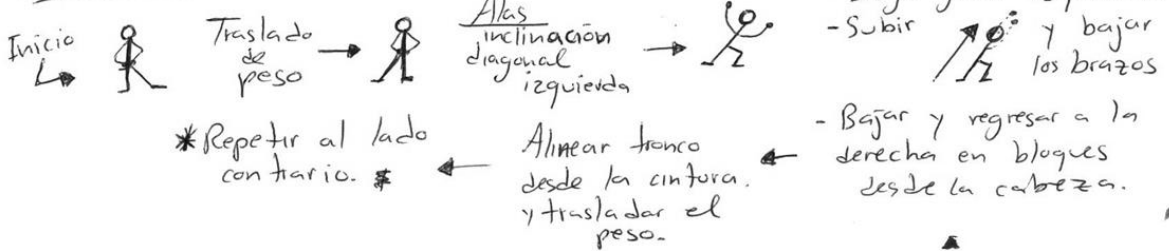 Inicio
Traslado
de
peso
Alas
inclinación
diagonal
izquierda
- Subir
y bajar
los brazos
- Bajar y regresar a la
derecha en bloques
desde la cabeza.
Alinear tronco
desde la cintura.
y trasladar el
peso.
*Repetir al lado
contrario. *